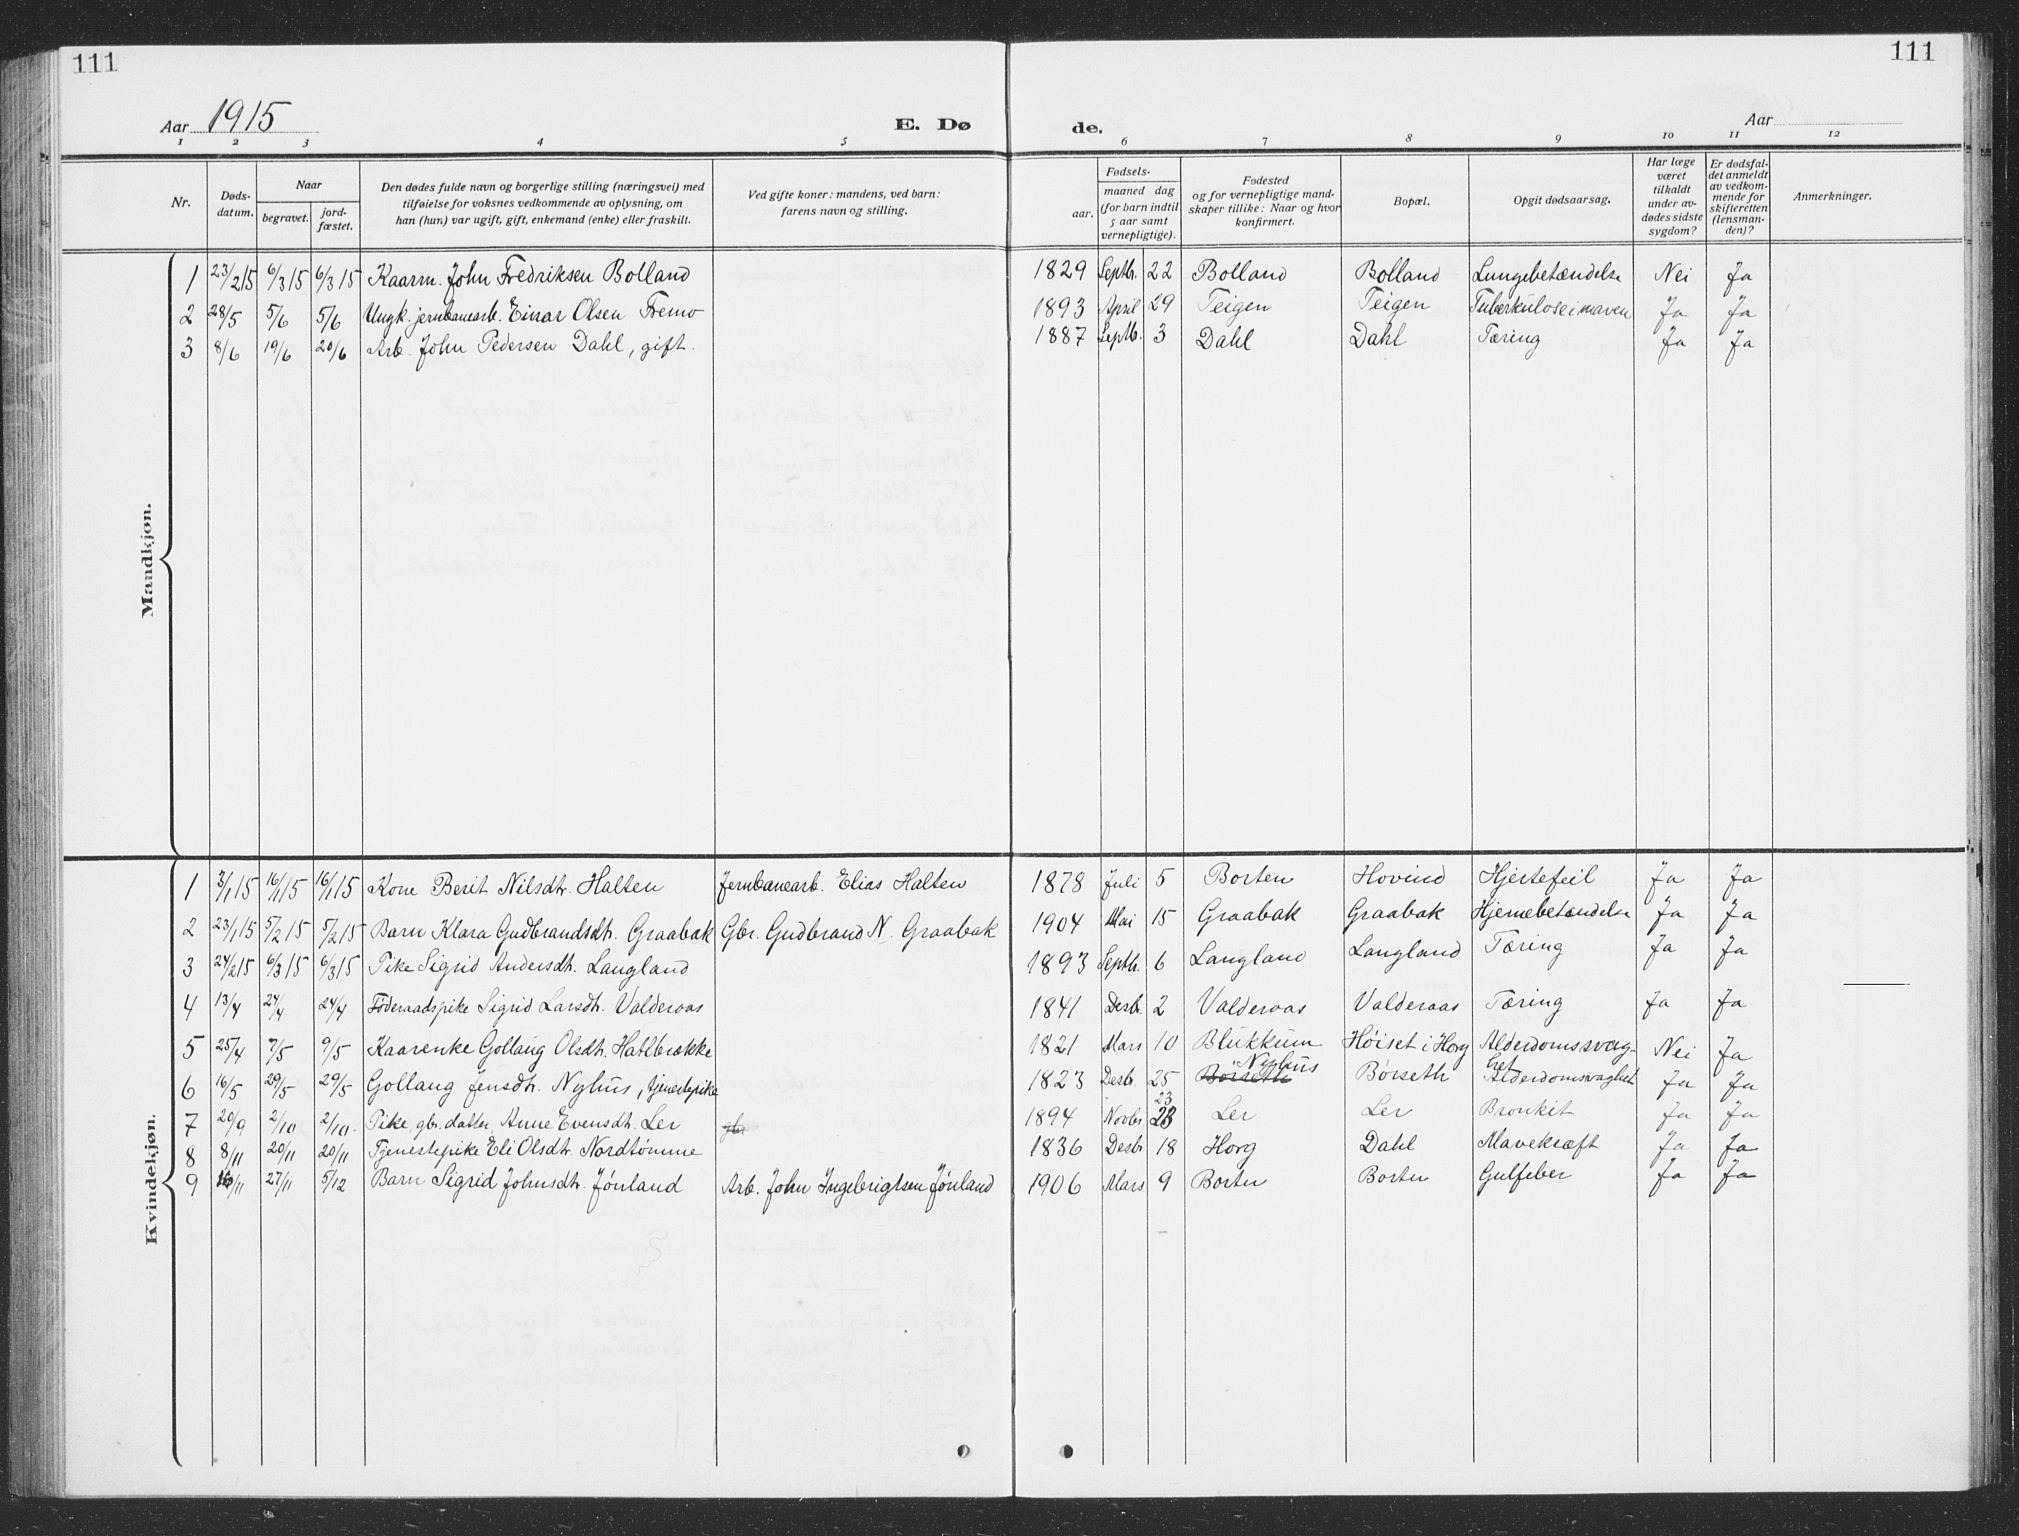 111
111
Aar 1915
E. Døde.
Aar
1 2 3 4 5 6 7 8 9 10 11 12
Nr.
Døds-datum.
Naar
begravet.
jord-fæstet.
Den dødes fulde navn og borgerlige stilling (næringsvei) med
tilføielse for voksnes vedkommende av oplysning, om
han (hun) var ugift, gift, enkemand (enke) eller fraskilt.
Ved gifte koner: mandens, ved barn:
farens navn og stilling.
Fødsels-
aar.
maaned dag
(for barn indtil
5 aar samt
vernepligtige).
Fødested
og for vernepligtige mand-
skaper tillike: Naar og hvor
konfirmert.
Bopæl.
Opgit dødsaarsag.
Har læge
været
tilkaldt
under av-
dødes sidste
sygdom?
Er dødsfal-
det anmeldt
av vedkom-
mende for
skifteretten
(lensman-
den)?
Anmerkninger.
Mandkjøn.
1 23/2 15 6/3 15 6/3 15 Kaarm. John Fredriksen Bolland 1829 Septb. 22 Bolland Bolland Lungebetændelse Nei Ja
2 28/5 5/6 5/6 Ungk. jernbanearb. Einar Olsen Fremo 1893 April 29 Teigen Teigen Tuberkulose i maven Ja Ja
3 8/6 19/6 20/6 Arb. John Pedersen Dahl, gift. 1887 Septb. 3 Dahl Dahl Tæring Ja Ja
Kvindekjøn.
1 3/1 15 16/1 15 16/1 15 Kone Berit Nilsdtr. Halten Jernbanearb. Elias Halten 1878 Juli 5 Borten Hovind Hjertefeil Ja Ja
2 23/1 15 5/2 15 5/2 15 Barn Klara Gudbrandsdt. Graabak Gbr. Gudbrand N. Graabak 1904 Mai 15 Graabak Graabak Hjernebetændelse Ja Ja
3 24/2 15 6/3 15 6/3 15 Pike Sigrid Andersdtr. Langland 1893 Septb. 6 Langland Langland Tæring Ja Ja
4 13/4 24/4 24/4 Føderaadspike Sigrid Larsdtr. Valderaas 1841 Desb. 2 Valderaas Valderaas Tæring Ja Ja
5 25/4 7/5 9/5 Kaarenke Gollaug Olsdtr. Hatlbrække 1821 Mars 10 Blukkum Høiset i Horg Alderdomssvag-
het Nei Ja
6 16/5 29/5 29/5 Gollaug Jensdtr. Nyhus, tjenestepike 1823 Desb. 25 Børseth Nyhus Børseth Alderdomsvaghet Ja Ja
7 20/9 2/10 2/10. Pike, gbr. datter, Anne Evensdt. Ler gbr 1894 Novbr. 23 23 Ler Ler Bronkit Ja Ja
8 8/11 20/11 20/11 Tjenestepike Eli Olsdtr. Nordtømme 1836 Desb 18 Horg Dahl Mavekræft Ja Ja
9 16/11 27/11 5/12 Barn Sigrid Johnsdtr. Jønland Arb. John Ingebrigtsen Jønland 1906 Mars 9 Borten Borten Gulfeber Ja Ja